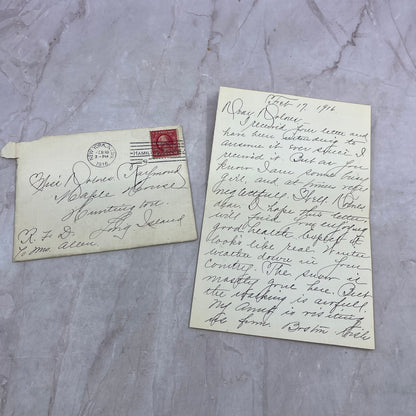 NEW YORK, N.Y.
1916
HAMIL
Miss Dolores Raymond
Maple House
Huntington
Long Island
R. F. D.
To Mrs. Allen
Oct 17, 1916
Dear Dolores -
I received your letter and
have been intending to
answer it ever since I
received it. But as you
know I am some busy
girl, and at times very
neglectful. Well, Dolores
dear I hope this letter
will find you enjoying
good health. Suppose it
looks like real Winter
weather down in your
country. The snow is
mostly gone here. But
the walking is awful.
My Aunt is visiting
us from Boston